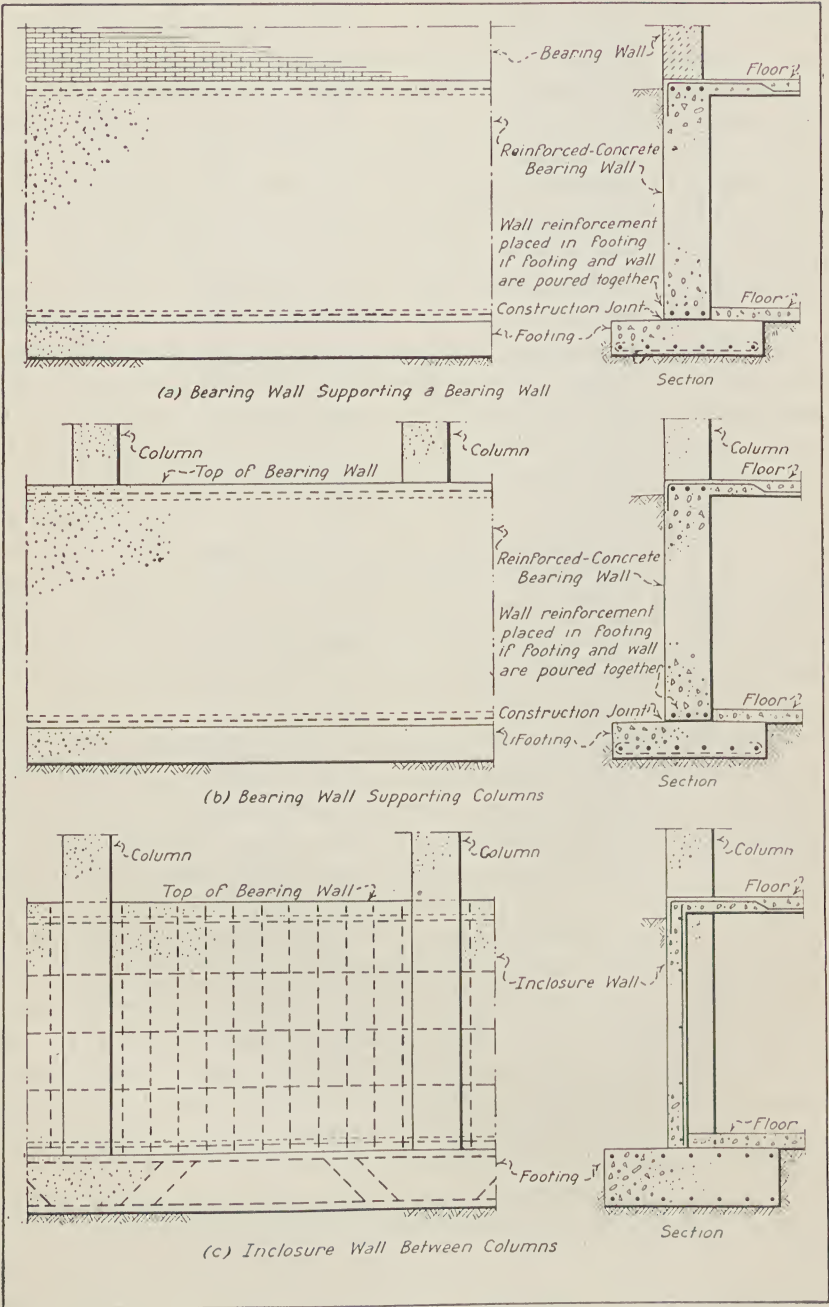 Bearing Wall
Floor
Reinforced-Concrete
Bearing Wall
Wall reinforcement
placed in footing
if footing and wall
are poured together
Construction Joint
Floor
Footing
Section
(a) Bearing Wall Supporting a Bearing Wall
Column
Column
Column
Top of Bearing Wall
Floor
Reinforced-Concrete
Bearing Wall
Wall reinforcement
placed in footing
if footing and wall
are poured together
Construction Joint
Floor
Footing
Section
(b) Bearing Wall Supporting Columns
Column
Column
Column
Top of Bearing Wall
Floor
Inclosure Wall
Floor
Footing
Section
(c) Inclosure Wall Between Columns